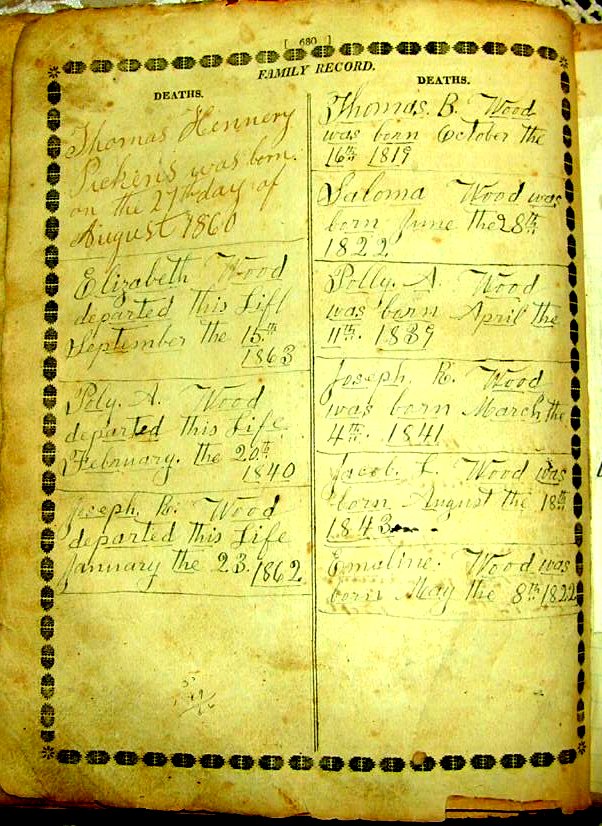 [ 680 ]
FAMILY RECORD.
DEATHS.
Thomas Hennery
Pickens was born.
on the 27th day of
August 1860
Elizabeth Wood
departed this Lifl
September the 15th
1863
Poly. A. Wood
departed this Life
February. the 20th
1840
Joseph. R. Wood
departed this Life
January the 23. 1862
DEATHS.
Thomas. B. Wood
was born October the
16th 1819
Saloma Wood was
born June the 28th
1822
Polly. A. Wood
was born April the
11th. 1839
Joseph. R. Wood
was born March the
4th. 1841
Jacob. L. Wood was
born August the 18th
1843
Emaline. Wood was
born May the 8th 1822